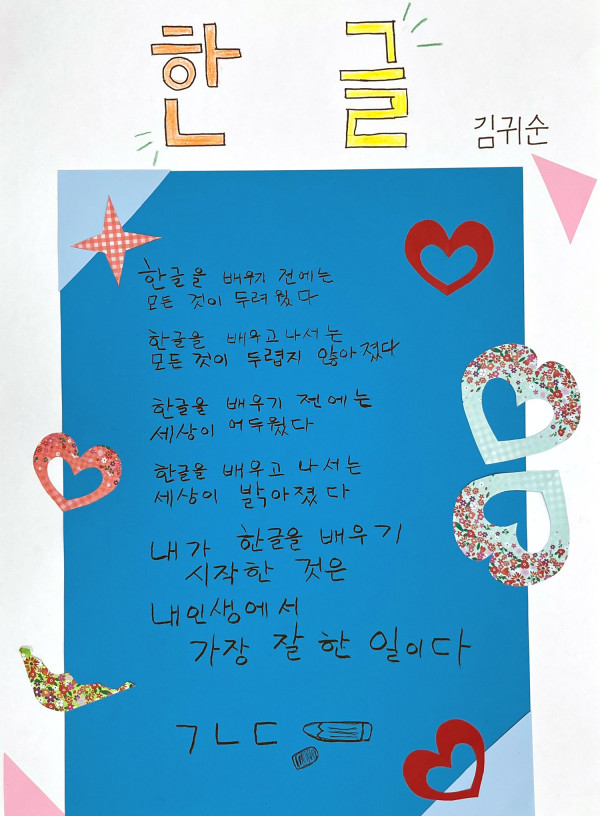 한글
김귀순
한글을 배우기 전에는
모든 것이 두려웠다
한글을 배우고 나서는
모든 것이 두렵지 않아졌다
한글을 배우기 전에는
세상이 어두웠다
한글을 배우고 나서는
세상이 밝아졌다
내가 한글을 배우기
시작한 것은
내 인생에서
가장 잘 한 일이다
ㄱㄴㄷ